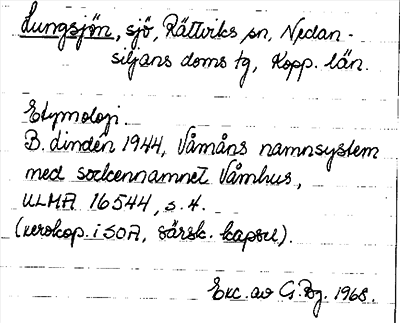 Lungsjön, sjö, Rättviks sn, Nedan-
siljans doms tg, Kopp. län.
Etymologi
B. Lindén 1944, Våmåns namnsystem
med sockennamnet Våmhus,
ULMA 16544, s. 4.
(xerokop. i SOA, särsk. kapsel).
Exc. av G. Bg. 1968.